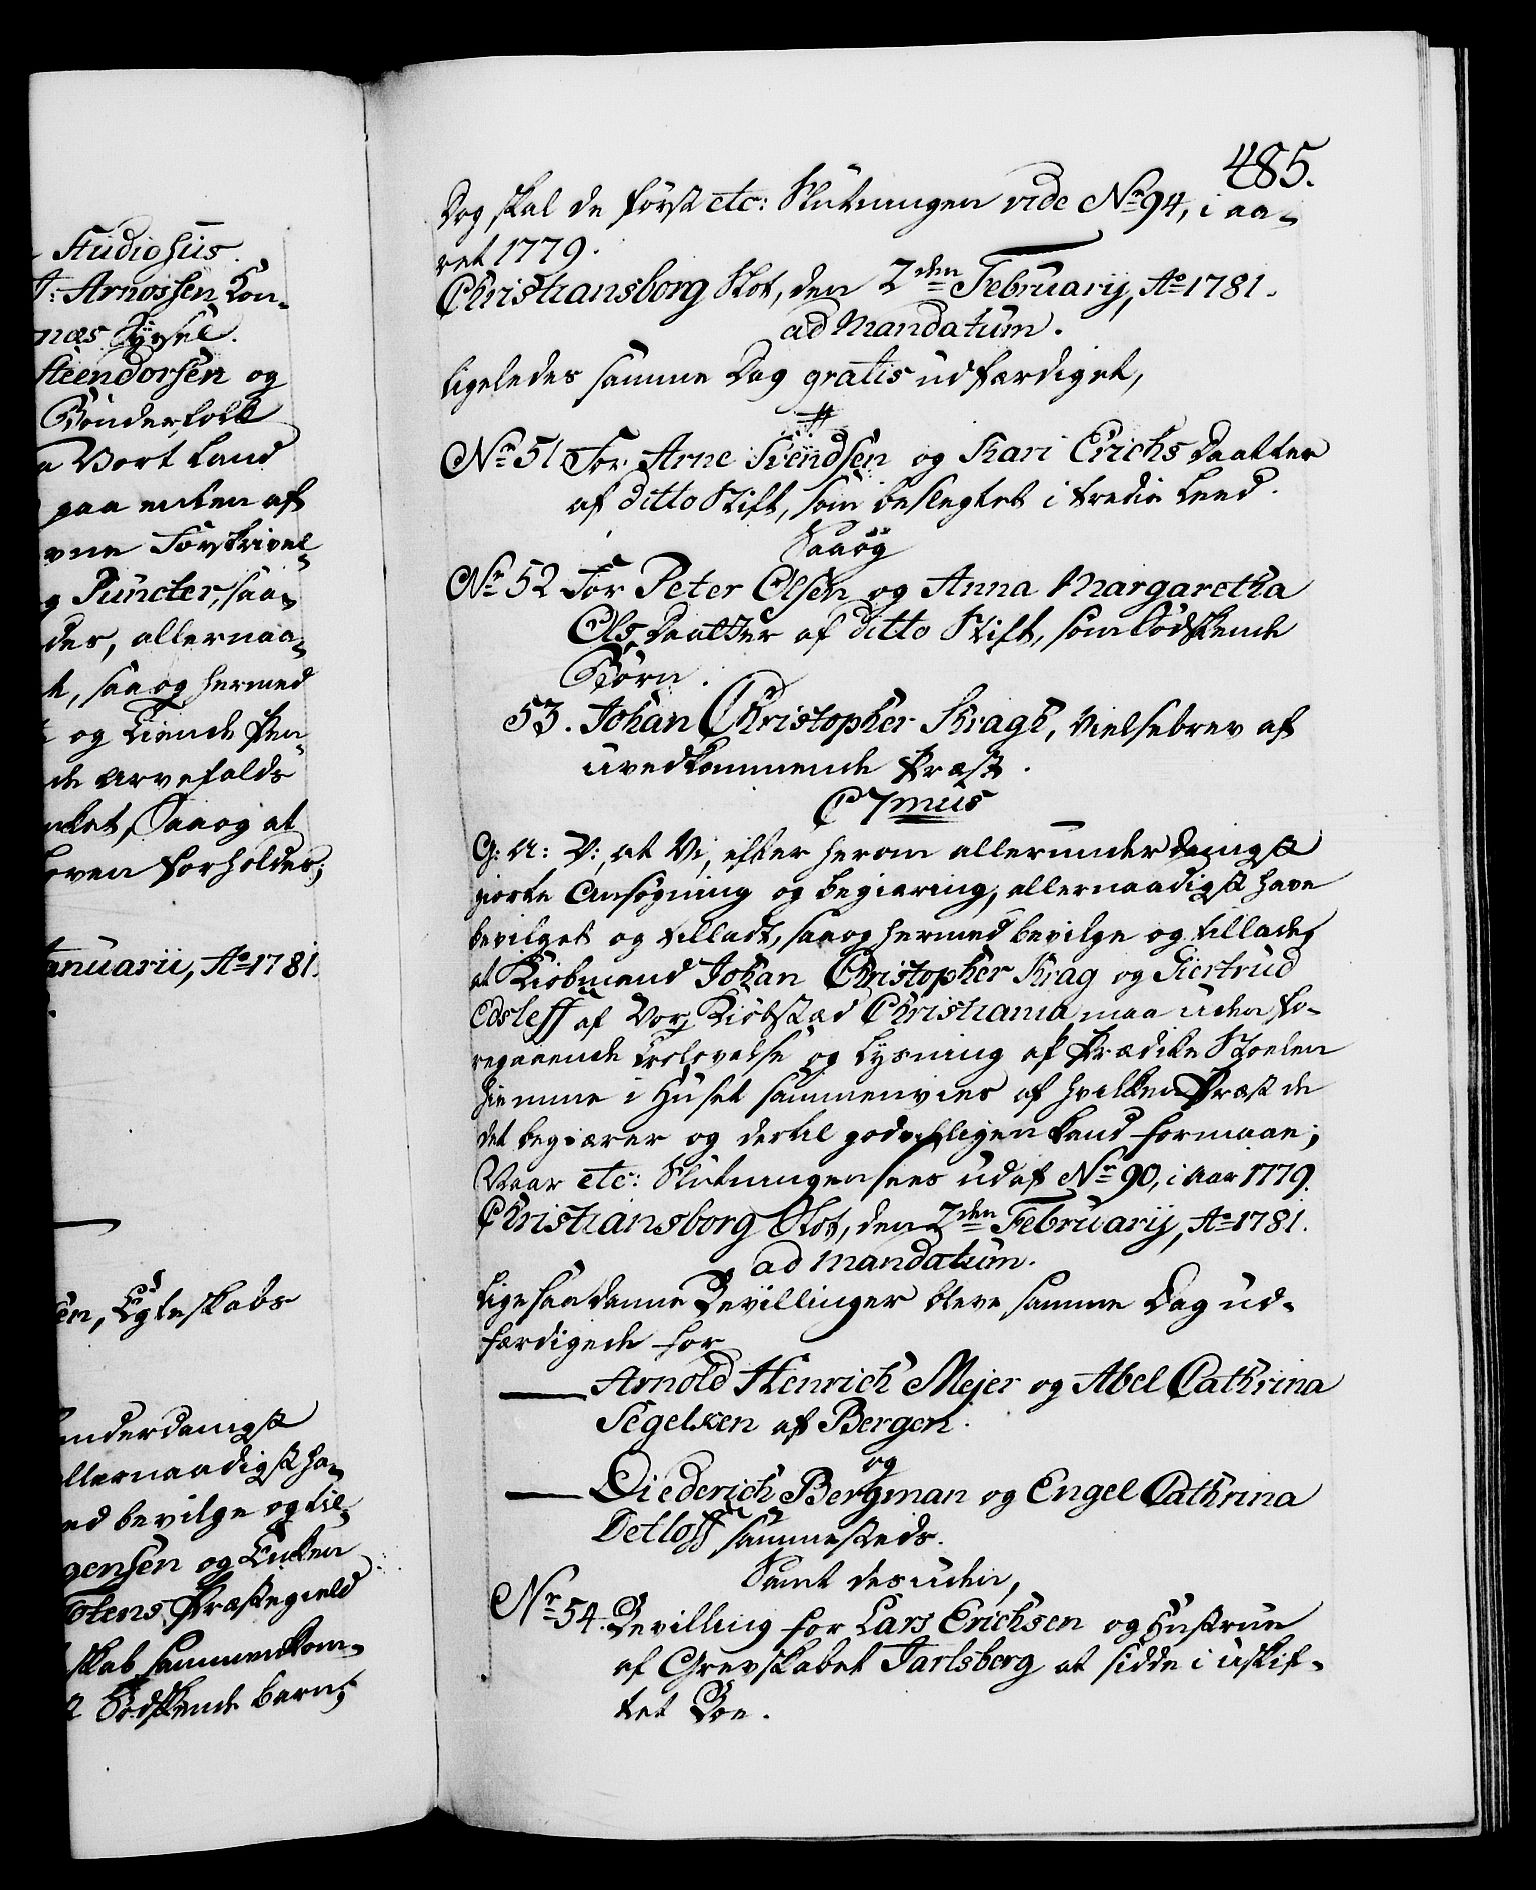 Studiosus.
Arnossen, Kon-
næs Sysel.
Steendorsen og
Bønderfolk
Vort Land
paa enten af
Forskrivel-
Puncter, saa-
des, allernaa-
saa og hermed
og Tiende Pen-
de Arvefalds
Saa og at
Loven forholdes;
Januarii, Ao 1781.
Egteskabs
underdanigst
allernaadigst ha-
bevilge og til-
og Enken
Totens Præstegield
skab sammenkom-
2 Sødskende Børn;
485.
Dog skal de først etc: Slutningen vide No 94, i aa-
ret 1779.
Christiansborg Slot, den 2den Februarij, Ao 1781.
ad Mandatum.
Ligeledes samme Dag gratis udfærdiget,
No 51 For Arne Svendsen og Kari Erichs Daatter
af ditto Stift, som beslegtet i tredie Leed.
Saaog
No 52 For Peter Olsen og Anna Margaretha
Ols Daatter af ditto Stift, som Sødskende
Børn.
53. Johan Christopher Kragh, Vielsebrev af
uvedkommende Præst.
C 7mus
G: A: V: at Vi, efter herom allerunderdanigst
giorte Ansøgning og Begiæring, allernaadigst have
bevilget og tilladt, saa og hermed bevilge og tillade,
at Kiøbmand Johan Christopher Krag og Giertrud
Edsleff af Vor Kiøbstæd Christiania maa uden fo-
regaaende Trolovelse og Lysning af Prædike Stoelen
hiemme i Huset sammenvies af hvilken Præst de
det begiærer og dertil godvilligen kand formaae;
Naar etc: Slutningen sees udaf No 90, i Aar 1779.
Christiansborg Slot, den 2den Februarij, Ao 1781.
ad mandatum.
Lige saadanne Bevillinger bleve samme Dag ud-
færdigede for
Arnold Henrich Mejer og Abel Cathrina
Segelken af Bergen.
og
Diederich Bergman og Engel Cathrina
Detloff sammesteds.
Samt desuden,
No 54. Bevilling for Lars Erichsen og Hustrue
af Grevskabet Jarlsberg at sidde i uskif-
tet Boe.